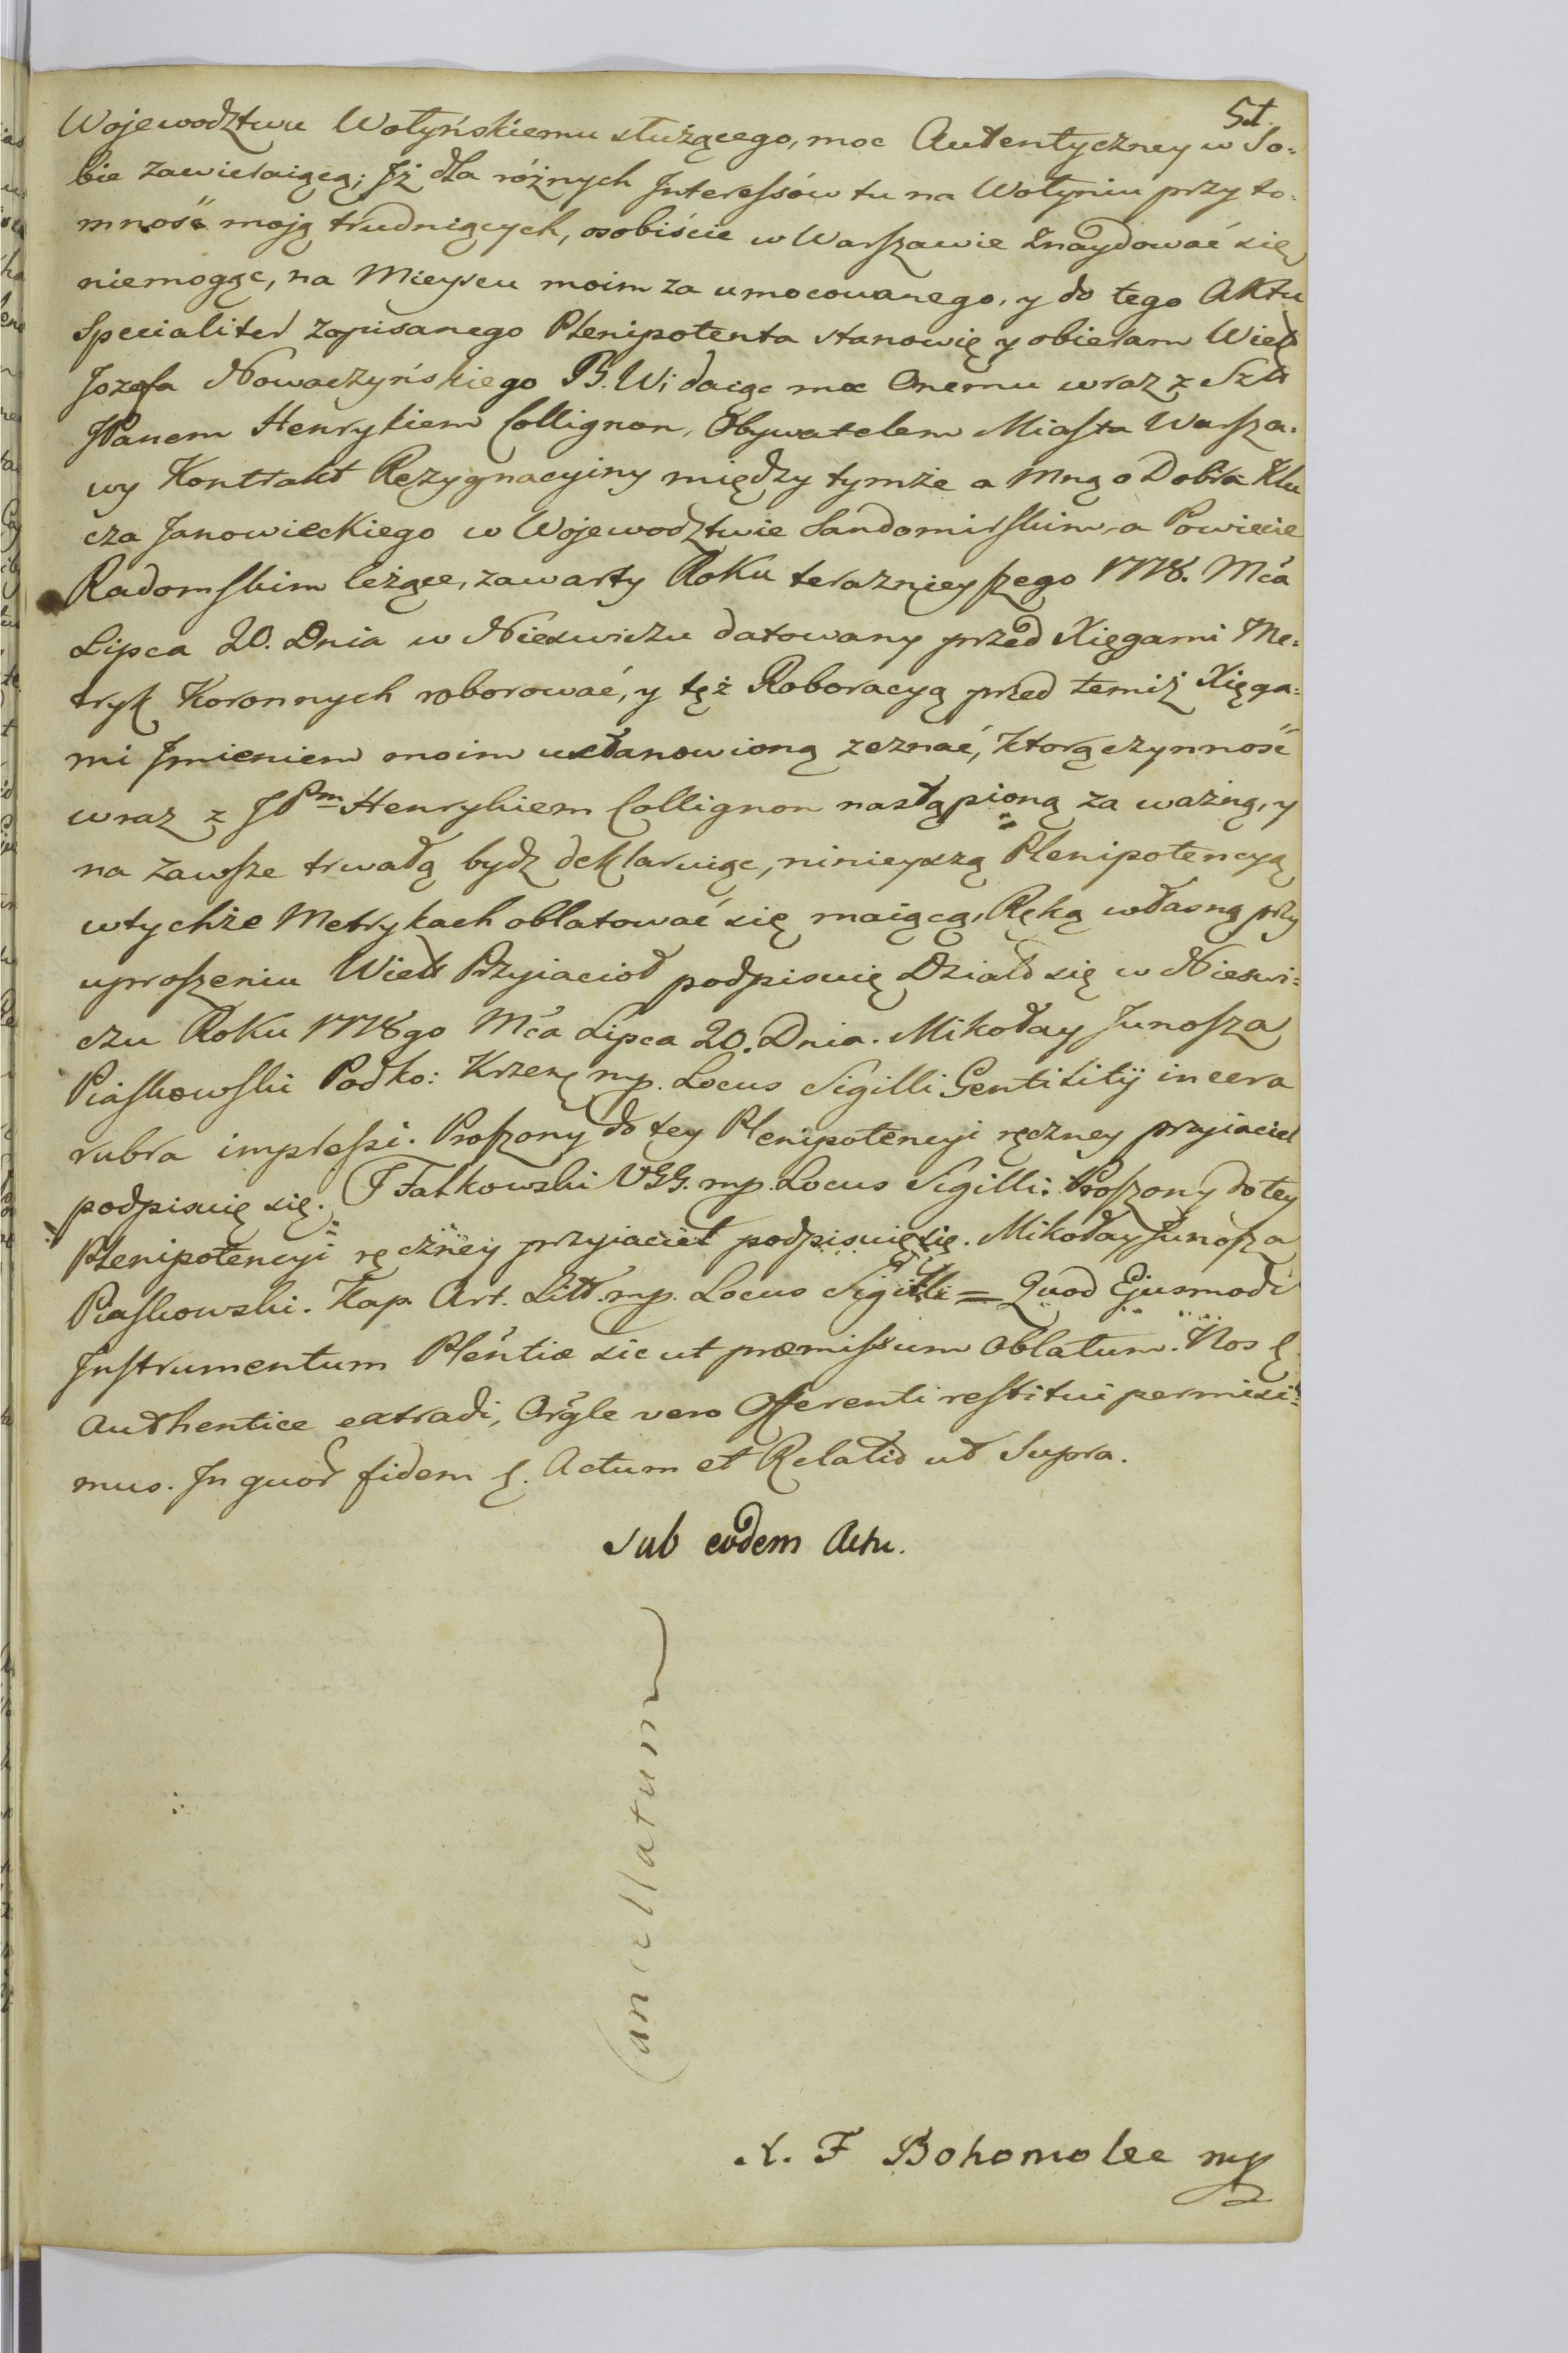 51.
Wojewodztwu Wołyńskiemu służącego, moc Autentyczney w So:
bie zawieraiącą; Jż dla różnych Jnteressów tu na Wołyniu przyto:
mność moją trudniących, osobiście w Warszawie Znaydować się
niemogąc, na Mieyscu moim za umocowanego, y do tego Aktu
Specialiter zapisanego Plenipotenta stanowię y obieram Wielo
Jozefa Nowaczyńskiego B. W; daiąc moc Onemu wraz z Szla
JPanem Henrykiem Collignon, Obywatelem Miasta Warsza:
wy Kontrakt Rezygnacyiny między tymże a Mną o Dobra Klu
cza Janowieckiego w Wojewodztwie Sandomirskim, a Powiecie
Radomskim leżące, zawarty Roku teraznieyszego 1778. Mca
Lipca 20. Dnia w Nieswiczu datowany przed Xięgami Me:
tryk Koronnych roborować, y tęż Roboracyą przed temiż Xięga:
mi Jmieniem moim ustanowioną zeznać, ktorą czynność
wraz z JPm Henrykiem Collignon nastąpioną za ważną, y
na zawsze trwałą bydz deklaruiąc, ninieyszą Plenipotencyą
w tychże Metrykach oblatować się maiącą, Ręką własną przy
uproszeniu Wiel Przyiacioł podpisuię Działo się w Nieswi:
czu Roku 1778go Mca Lipca 20. Dnia. Mikołay Junosza
Piaskowski Podko: Krzem mp. Locus Sigilli Gentilitij in cera
rubra impressi. Proszony do tey Plenipotencyi ręczney przyiaciel
podpisuię się. J Falkowski VGG. mp. Locus Sigilli. Proszony do tey
Plenipotencyi ręczney przyiaciel podpisuię się. Mikołay Junosza
Piaskowski. Kap. Art. Litt. mp. Locus Sigilli = Quod Ejusmodi
Jnstrumentum Plentiæ sic ut præmissum Oblatum. Nos
Authentice extradi, Orgle vero Offerenti restitui permisi:
mus. Jn quor fidem. Actum et Relatio ut Supra.
Sub eodem Actu.
Cancellatum
X. F Bohomolec mp